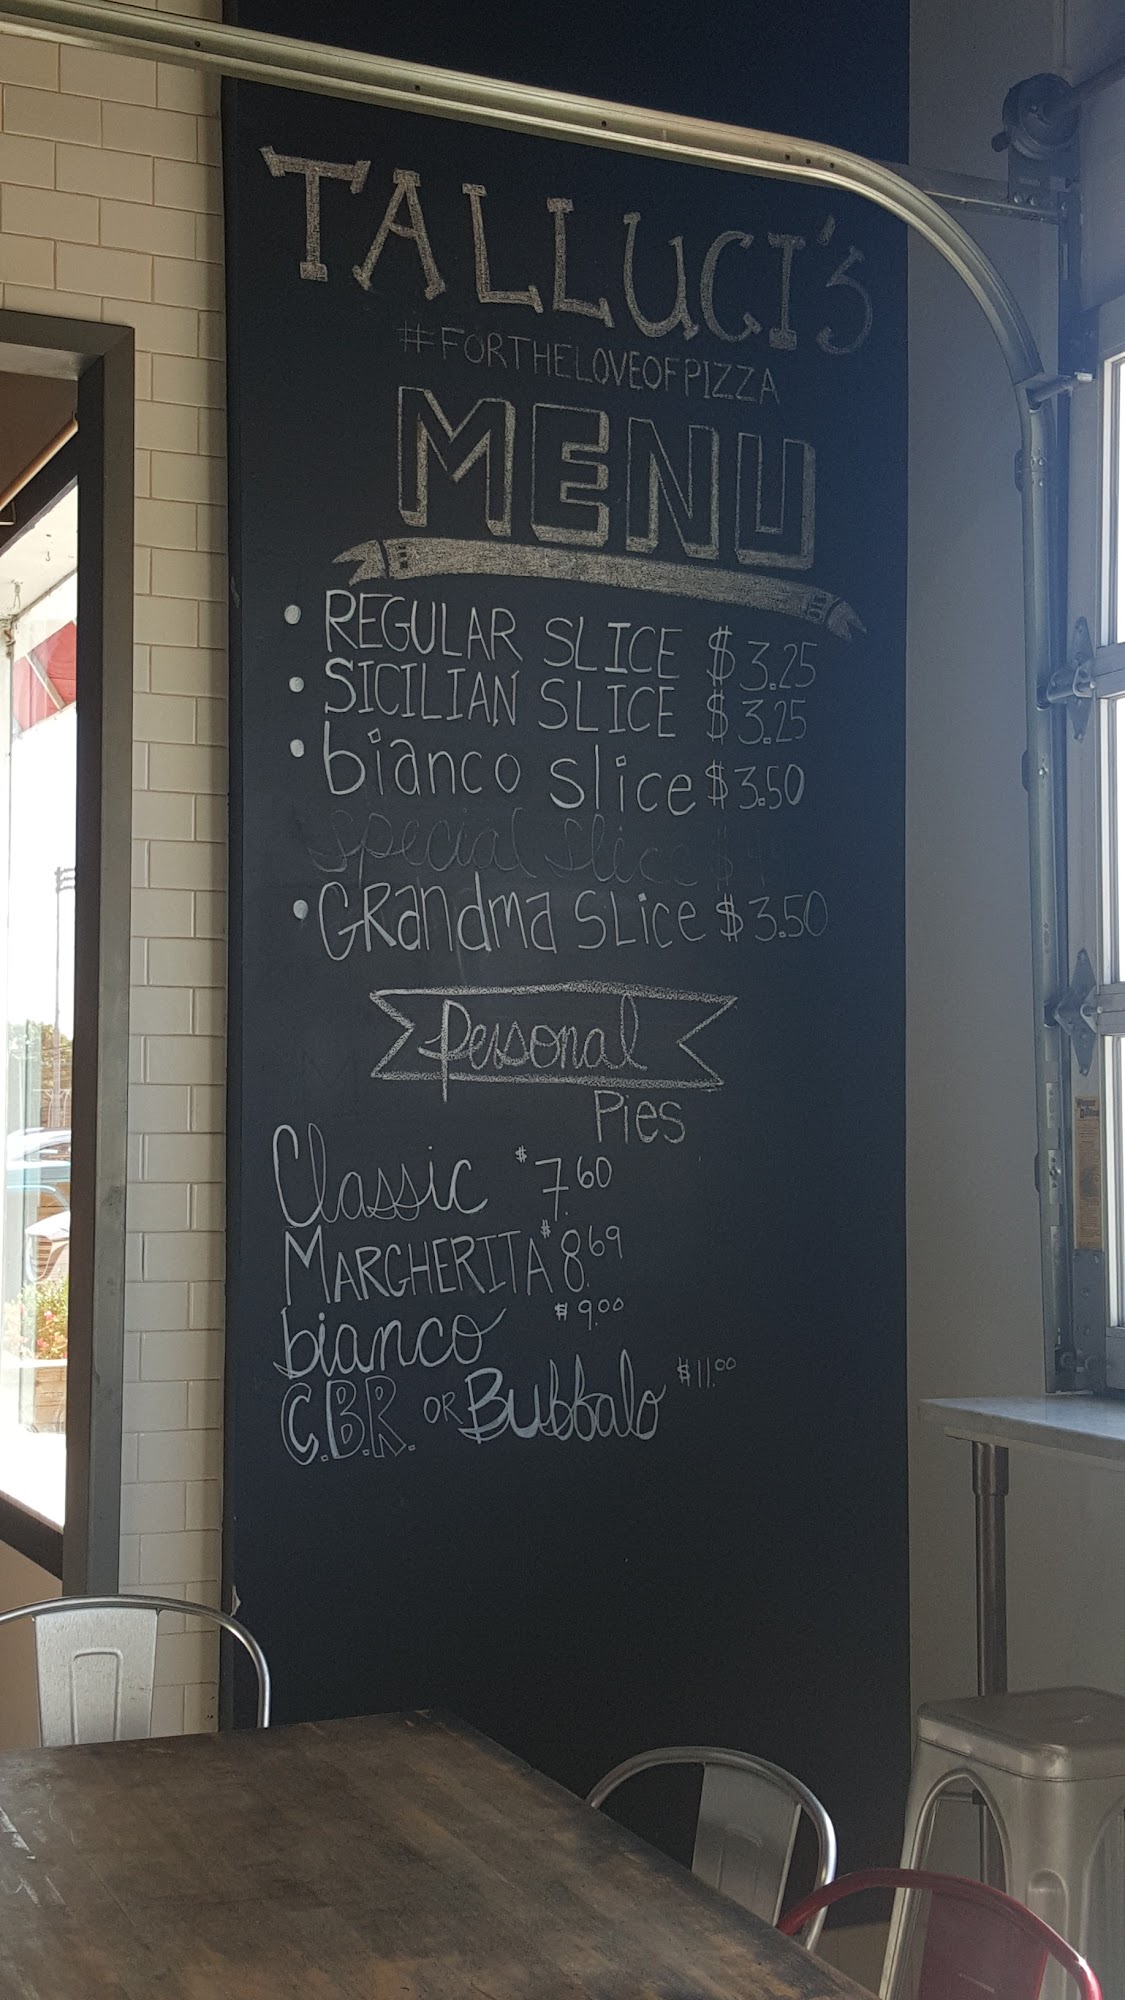 TALLUCI'S
#FORTHELOVEOFPIZZA
MENU
• REGULAR SLICE $3.25
• SICILIAN SLICE $3.25
• bianco slice $3.50
special slice $
• GRandma SLice $3.50
Personal
Pies
Classic $7.60
MARGHERITA $8.69
bianco $9.00
C.B.R. OR Buffalo $11.00